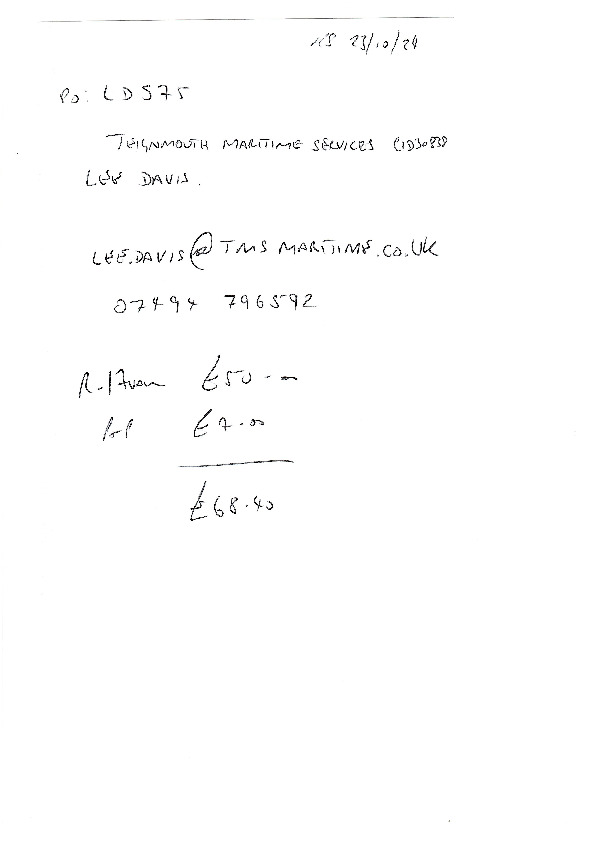 NS 23/10/24
PO: LD575
TEIGNMOUTH MARITIME SERVICES
LEE DAVIS.
LEE.DAVIS@TMSMARITIME.CO.UK
07494 796592
£50.—
£7.00
£68.40